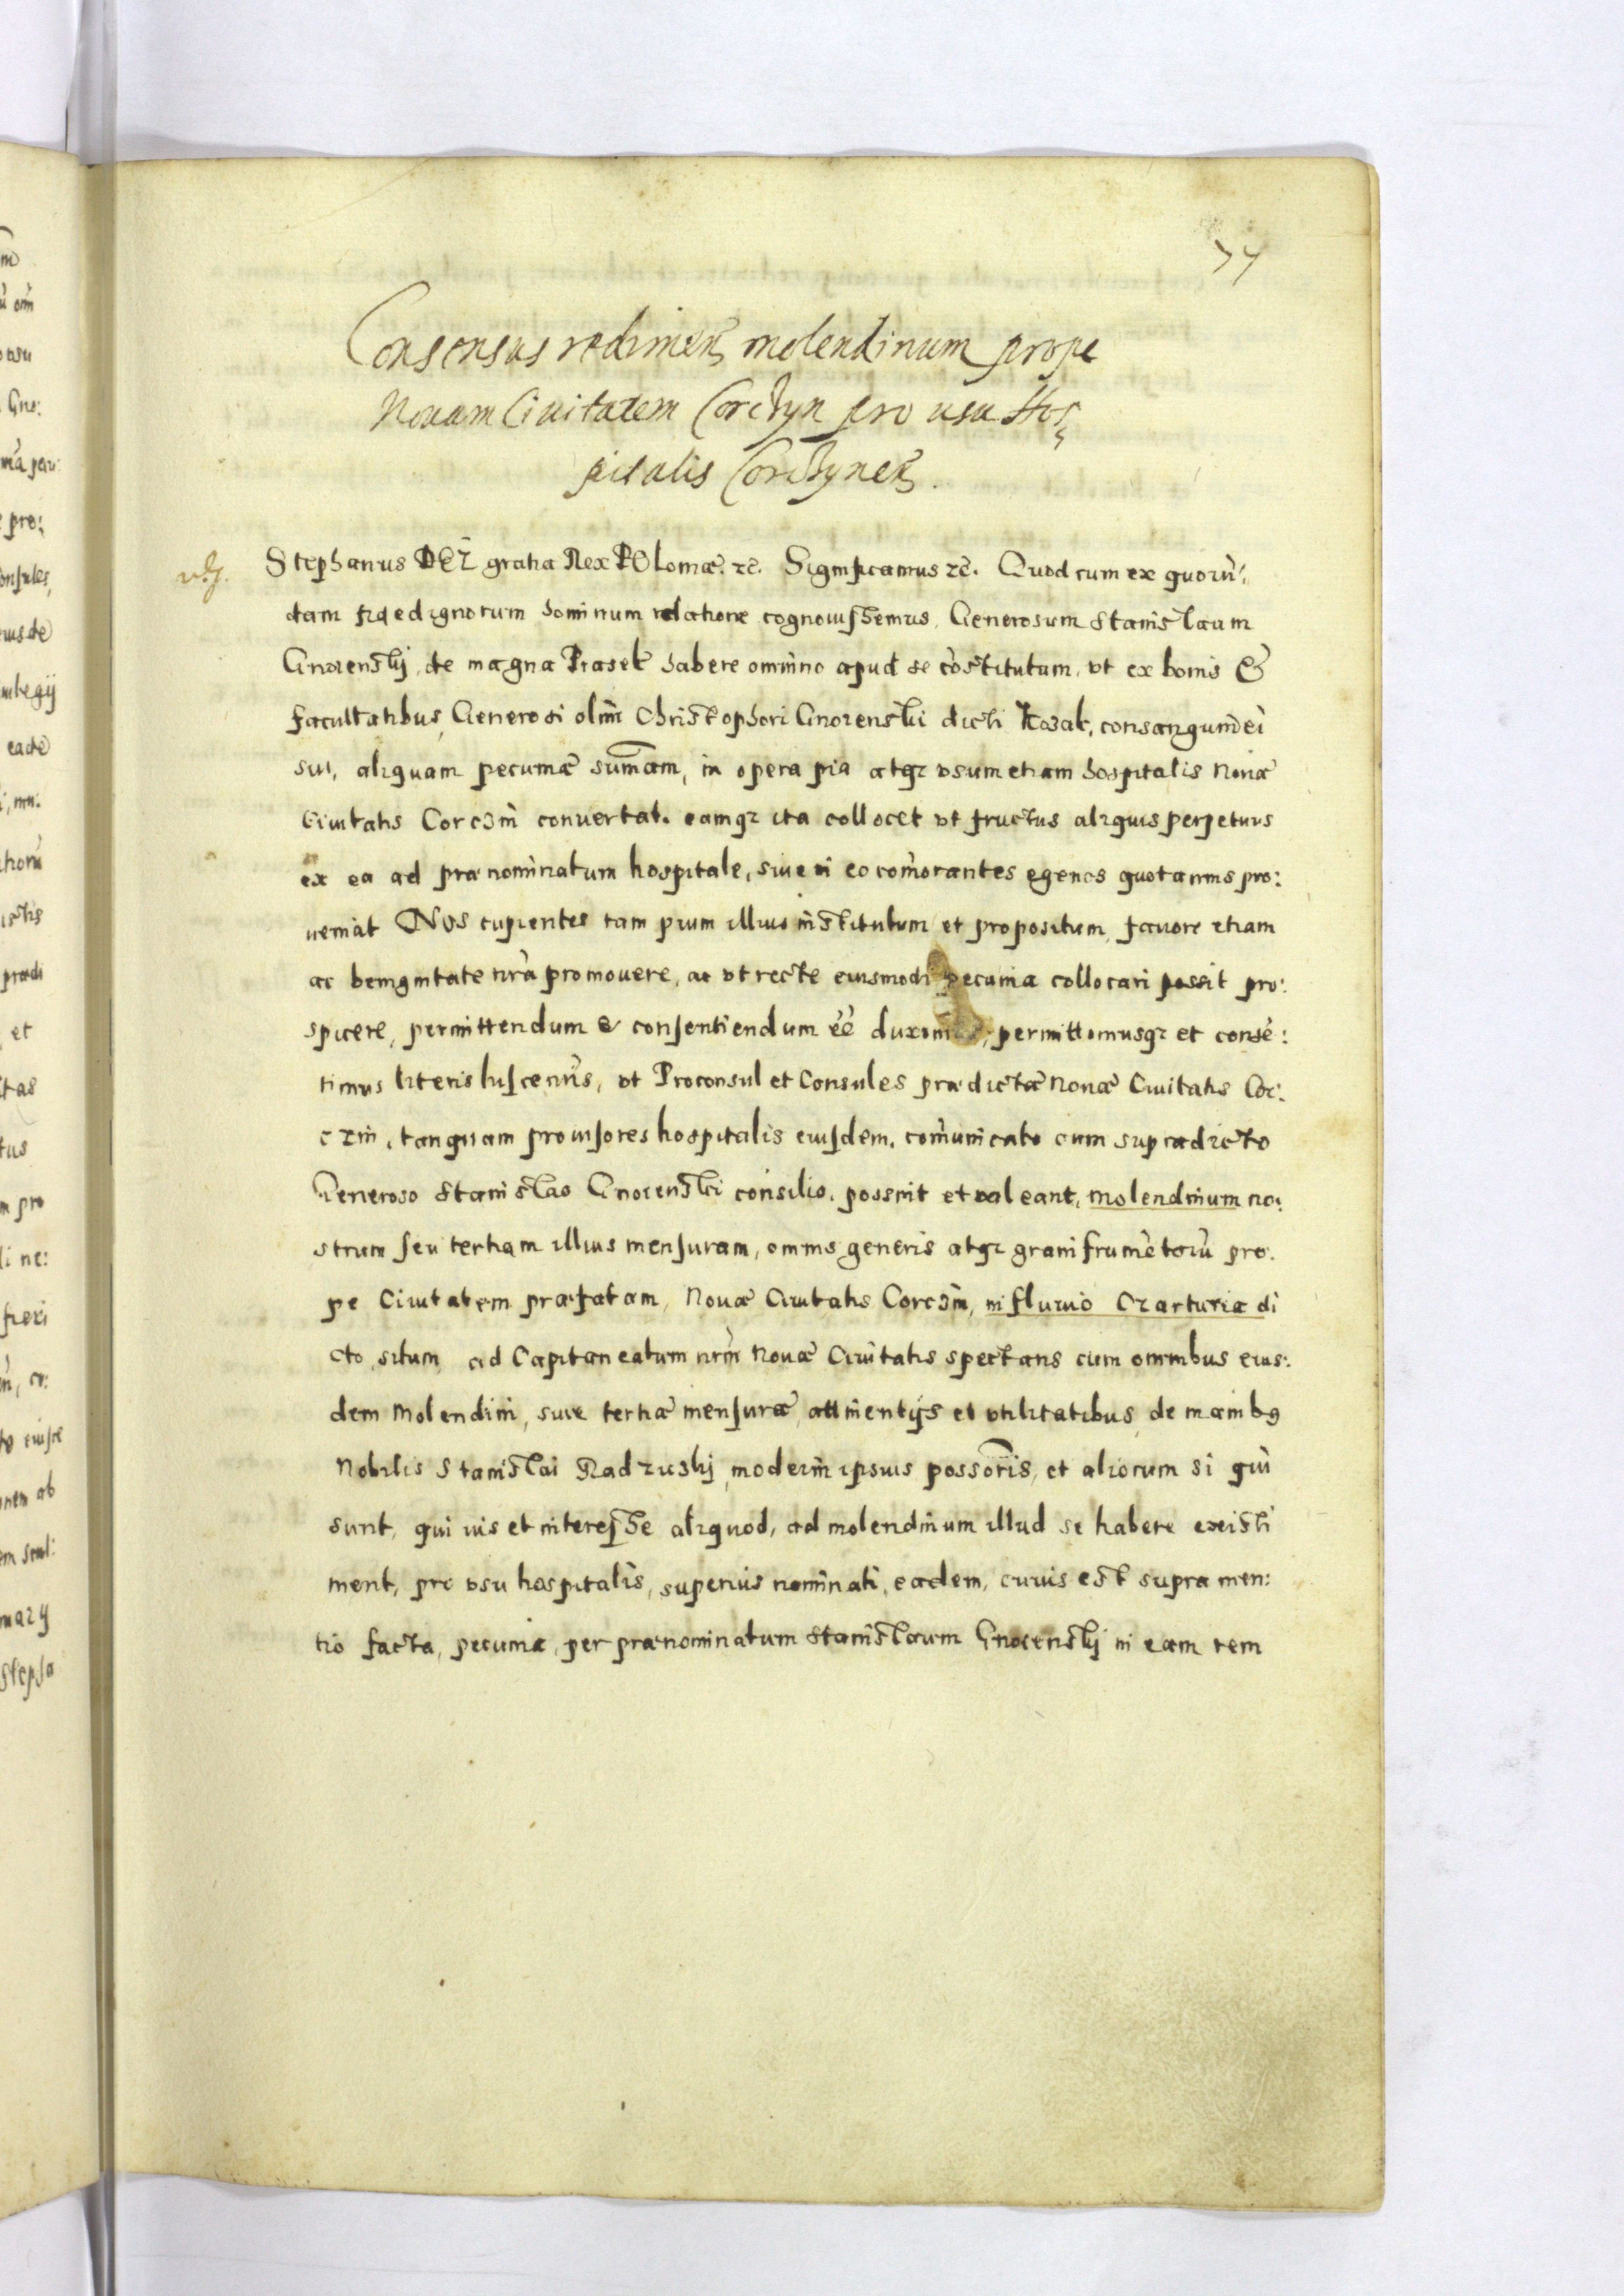 77
Consensus redimen molendinum prope
Nouam Ciuitatem Corchyn pro usu Hos
pitalis Corchynen.
Stephanus DEI gratia Rex POloniæ. rc̄. Significamus rc̄. Quod cum ex quorū
dam fidedignorum hominum relatione cognouissemus, Generosum Stanislaum
Gnoienskj, de magna Prasek habere omnino apud se cōstitutum, vt ex bonis &
facultatibus, Generosi olim Christophori Gnoienskii dicti Kozak, consanguinei
sui, aliquam pecuniæ sum̄am, in opera pia atqz vsum etiam hospitalis Nouæ
Ciuitatis Corczin conuertat. eamqz ita collocet vt fructus aliquis perpetuus
ex ea ad prænominatum hospitale, siue in eo com̄orantes egenos quotannis pro:
ueniat NOS cupientes tam pium illius institutum et propositum, fauore etiam
ac benignitate nr̄a promouere, ac vt recte eiusmodi pecunia collocari possit pro:
spicere, permittendum & consentiendum eē duximus, permittimusqz et consē:
timus literis hisce nr̄is, vt Proconsul et Consules prædictæ Nouæ Ciuitatis Cor:
czin, tanquam prouisores hospitalis eiusdem, com̄unicato cum supradicto
Generoso Stanislao Gnoienski consilio, possint et valeant, molendinum no:
strum seu tertiam illius mensuram, omnis generis atqz grani frumētorū pro:
pe Ciuitatem præfatam, Nouæ Ciuitatis Corczin, in fluuio Czarturia di
cto, situm, ad Capitaneatum nrm̄ Nouæ Ciuitatis spectans cum omnibus eius:
dem Molendini, siue tertiæ mensuræ, attinentijs et vtilitatibus, de manibg
Nobilis Stanislai Radziiskj, moderni ipsius possoris, et aliorum si qui
sunt, qui ius et interesse aliquod, ad molendinum illud se habere existi
ment, pro vsu hospitalis, superius nominati, eadem, cuius est supra men:
tio facta, pecunia, per prænominatum Stanislaum Gnoienskj in eam rem